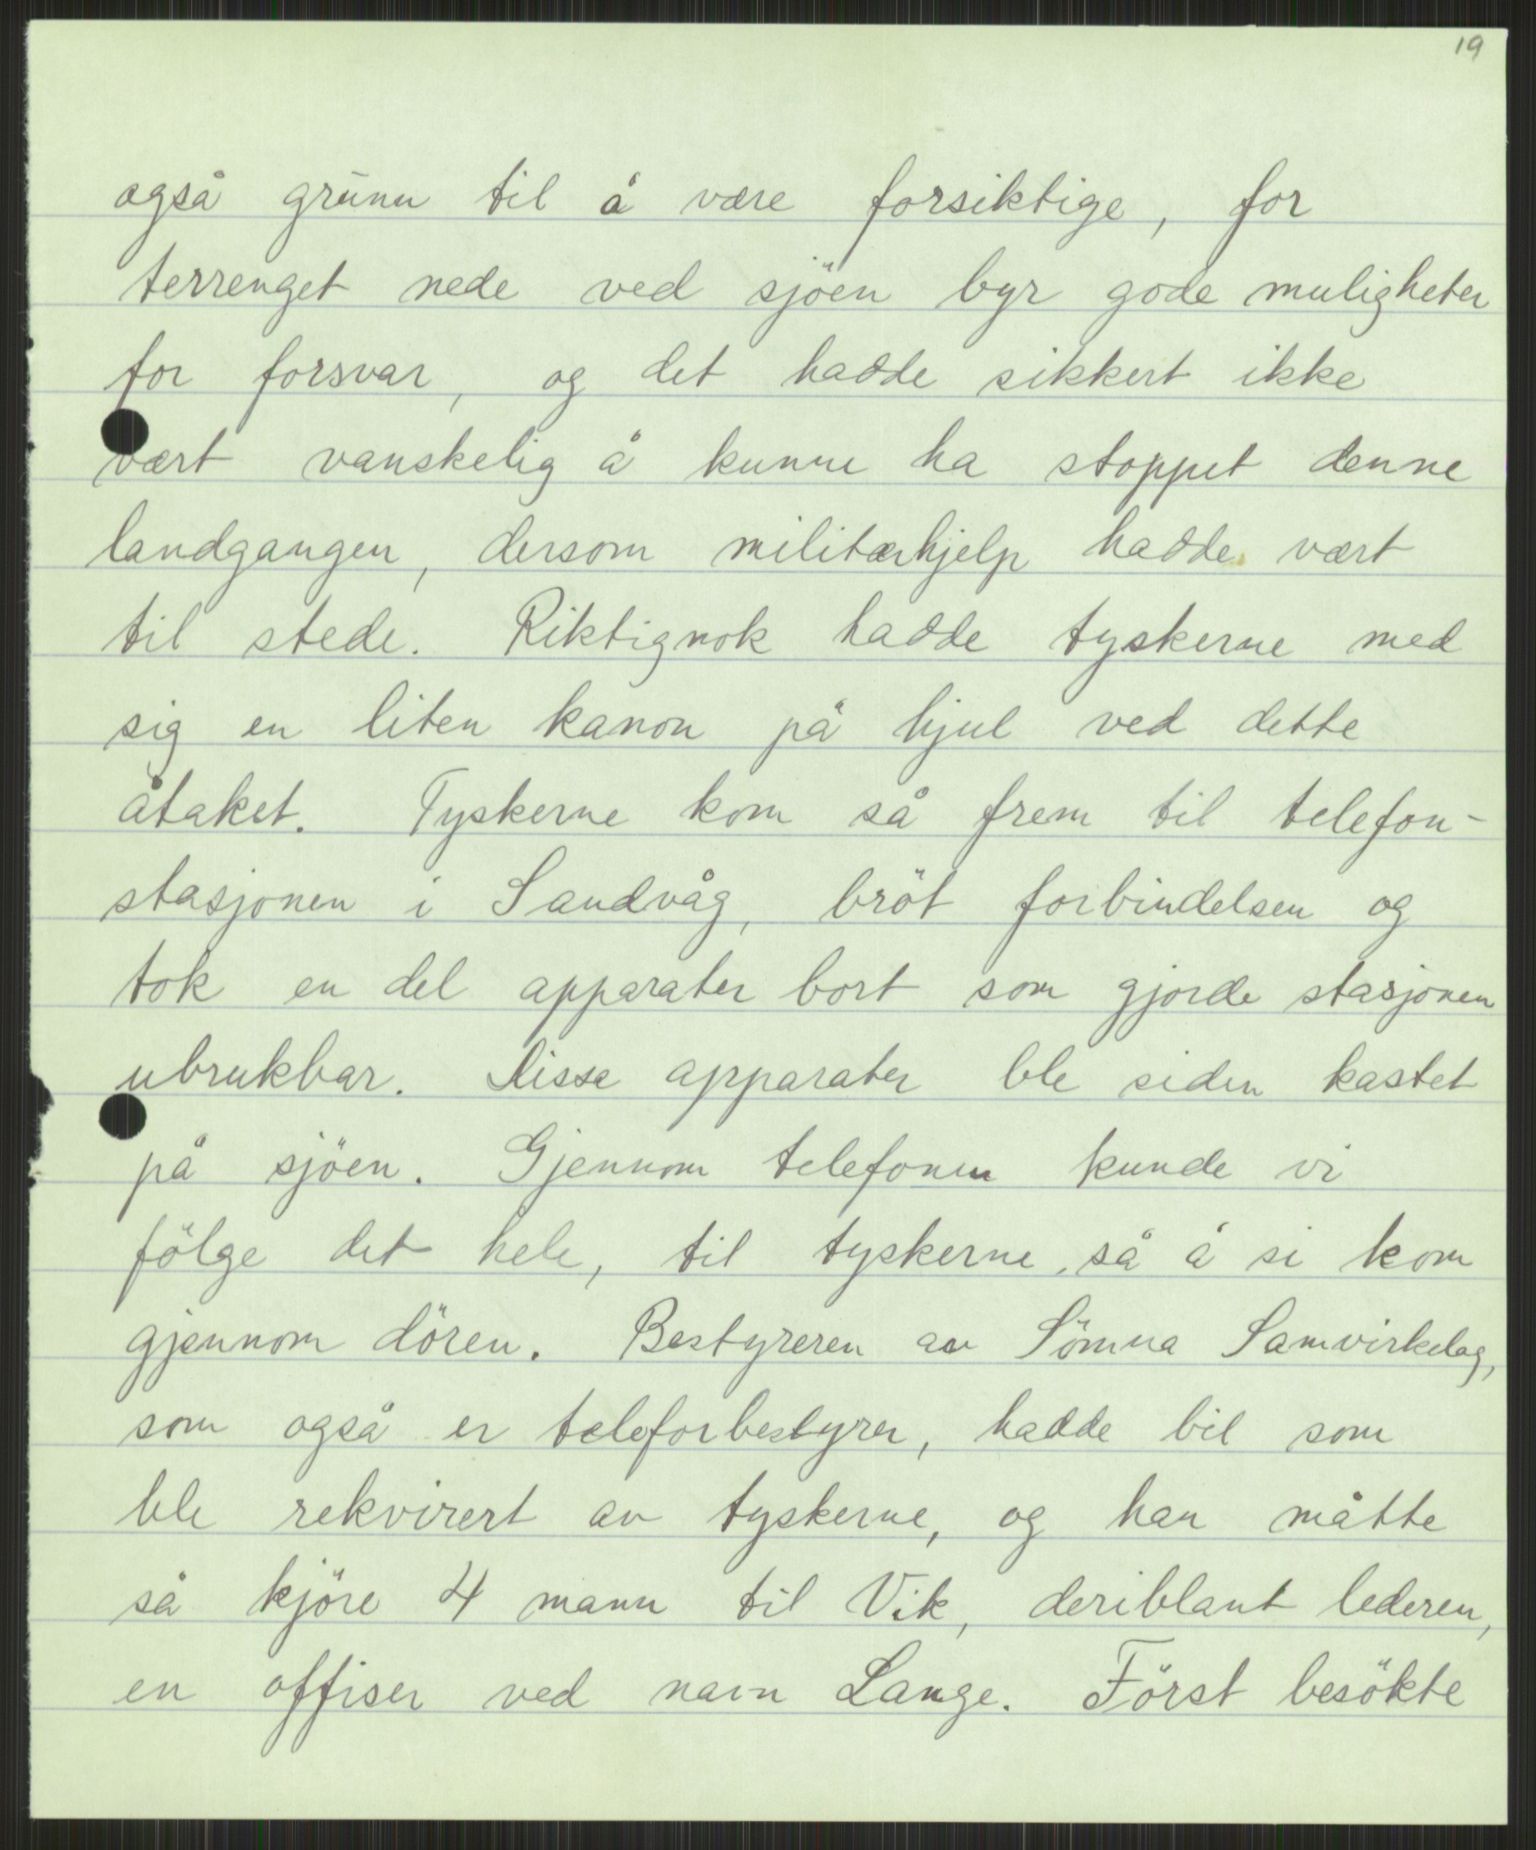 19
også grunn til å være forsiktige, for
terrenget nede ved sjöen byr gode muligheter
for forsvar, og det hadde sikkert ikke
vært vanskelig å kunne ha stoppet denne
landgangen, dersom militærhjelp hadde vært
til stede. Riktignok hadde tyskerne med
sig en liten kanon på hjul ved dette
åtaket. Tyskerne kom så frem til telefon-
stasjonen i Sandvåg, bröt forbindelsen og
tok en del apparater bort som gjorde stasjonen
ubrukbar. Disse apparater ble siden kastet
på sjöen. Gjennom telefonen kunde vi
fölge det hele, til tyskerne så å si kom
gjennom dören. Bestyreren av Sömna Samvirkelag,
som også er teleforbestyrer, hadde bil som
ble rekvirert av tyskerne, og han måtte
så kjöre 4 mann til Vik, deriblant lederen,
en offiser ved navn Lange. Först besökte